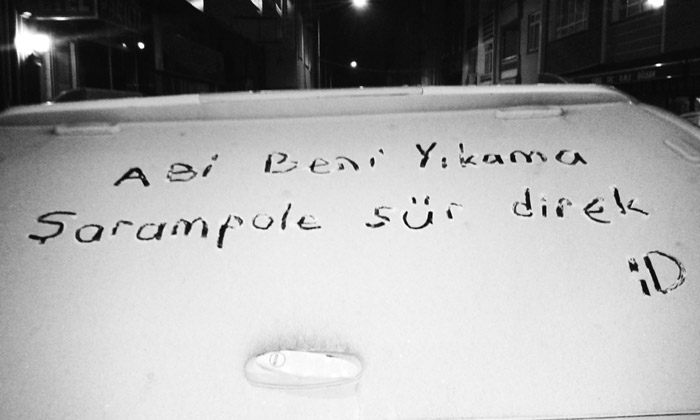 ABi Beni Yıkama
Şarampole sür direk
;D